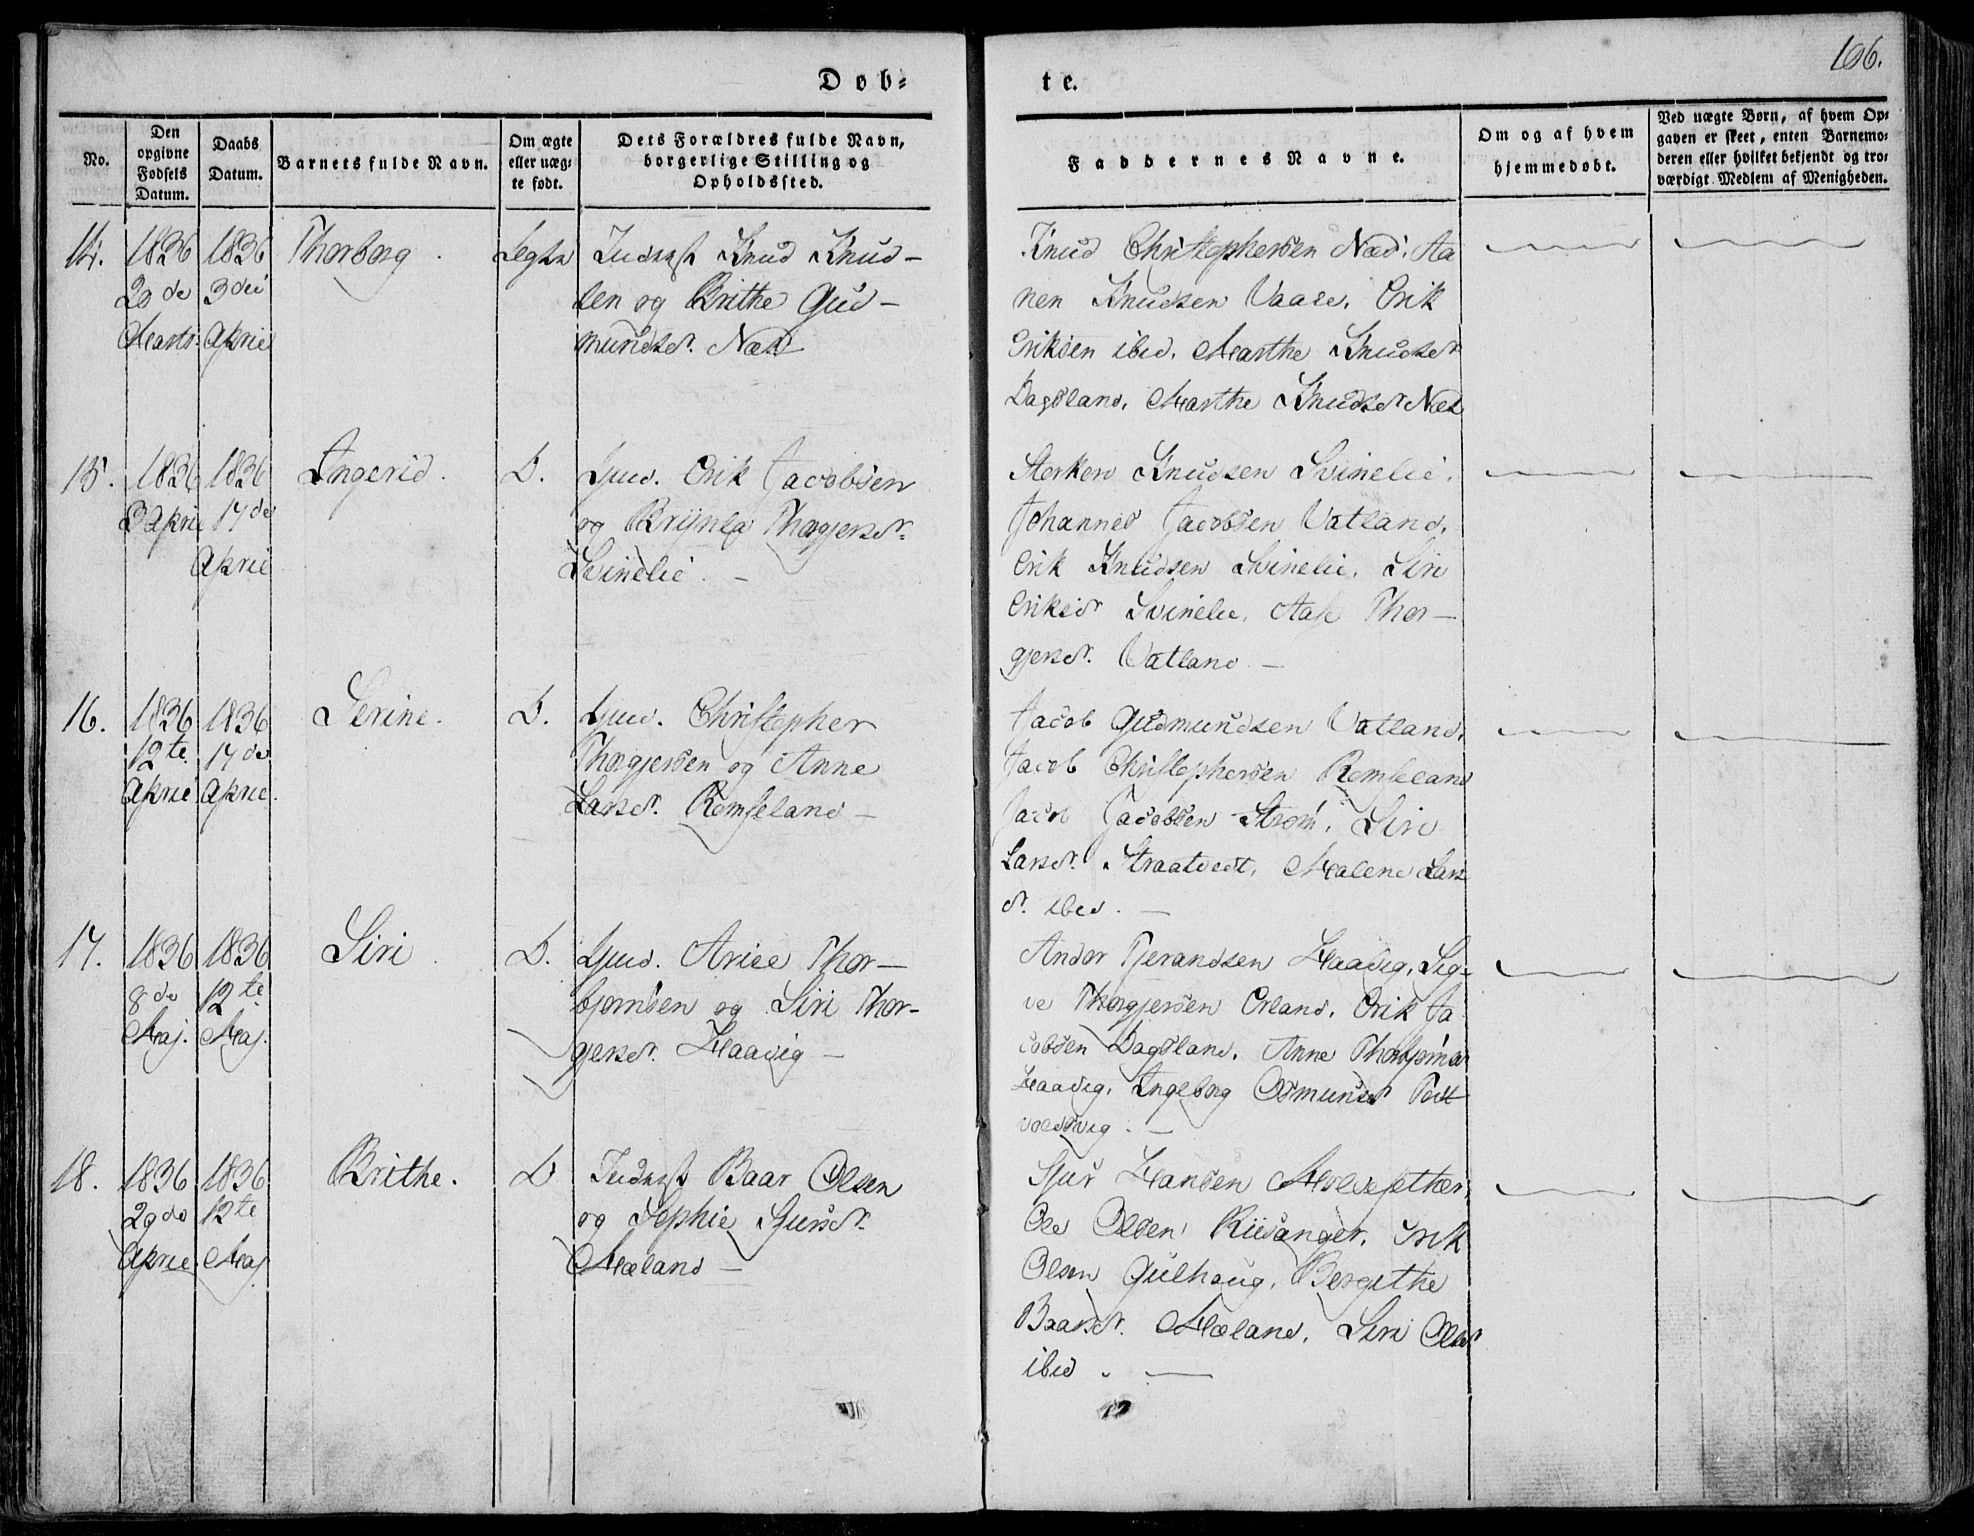 106.
Døb-
te.
No.
Den opgivne Fødsels Datum.
Daabs Datum.
Barnets fulde Navn.
Om ægte eller uæg-te født.
Dets Forældres fulde Navn, borgerlige Stilling og Opholdssted.
Faddernes Navne.
Om og af hvem hjemmedøbt.
Ved uægte Børn, af hvem Op-gaven er skeet, enten Barnemo-deren eller hvilket bekjendt og tro-værdigt Medlem af Menigheden.
14.
1836
20de
Marts.
1836
3die
April
Thorborg.
Ægte
Inderst Knud Knud-
sen og Brithe Gud-
mundsdr. Næs
Knud Christophersen Næs, Aa
nen Knudsen Vaage, Erik
Eriksen ibid, Marthe Knudsdr
Dagsland, Marthe Knudsdr Næs
15.
1836
3 April
1836
17de
April
Ingerid.
D.
Gud. Erik Jacobsen
og Brynla Thorgjersdr.
Svinelie. -
Sterken Knudsen Svinelie,
Johannes Jacobsen Vatland,
Erik Knudsen Svinelie, Siri
Eriksdr Svinelie, Aase Thor-
gjersdr. Vatland. -
16.
1836
12te
April
1836
17de
April.
Serine.
D.
Gud. Christopher
Thorgjersen og Anne
Larsdr. Remseland -
Jacob Gudmundsen Vatland,
Jacob Christophersen Remseland
Jacob Jacobsen Strøm, Siri
Larsdr. Straatvedt, Malene Lars
dr. ibid. -
17.
1836
8de
Maj.
1836
12te
Maj.
Siri.
D.
Gud. Arie Thor-
bjørnsen og Siri Thor-
gjersdr. Haavig -
Andor Tjerandsen Haavig, Sig-
ve Thorgjersen Erland, Erik Ja
cobsen Dagsland, Anne
Haavig, Ingeborg Osmundsdr
18.
1836
29de
April.
1836
12te
Maj
Brithe.
D
Inderst Baar Olsen
og Sophie Sjursdr.
Mæland -
Sjur Hansen
Ole Olsen Riisanger, Erik
Olsen Gulhaug, Bergithe
Baarsdr. Mæland, Siri Olsdr
ibid. -